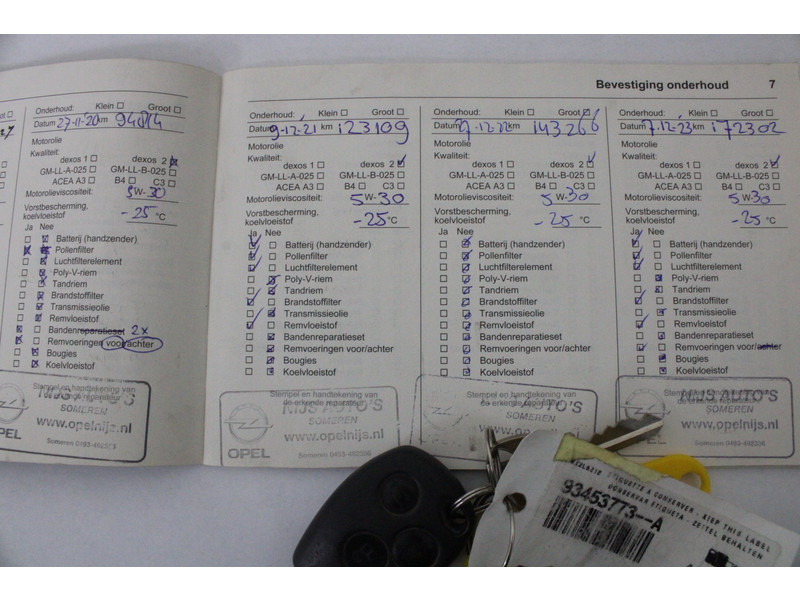 Bevestiging onderhoud 7
Onderhoud: Klein ☐ Groot ☐
Datum 27-11-20 km 94814
Motorolie
Kwaliteit:
dexos 1 ☐ dexos 2 ☒
GM-LL-A-025 ☐ GM-LL-B-025 ☐
ACEA A3 ☐ B4 ☐ C3 ☐
Motorolieviscositeit: 5W-30
Vorstbescherming,
koelvloeistof -25 °C
Ja Nee
Batterij (handzender)
Pollenfilter
Luchtfilterelement
Poly-V-riem
Tandriem
Brandstoffilter
Transmissieolie
Remvloeistof
Bandenreparatieset 2x
Remvoeringen voor/achter
Bougies
Koelvloeistof
Stempel en handtekening van
de erkende reparateur
NIJS AUTO'S
SOMEREN
www.opelnijs.nl
OPEL Someren 0493-492356
Onderhoud: Klein ☐ Groot ☐
Datum 9-12-21 km 123109
Motorolie
Kwaliteit:
dexos 1 ☐ dexos 2 ☑
GM-LL-A-025 ☐ GM-LL-B-025 ☐
ACEA A3 ☐ B4 ☐ C3 ☐
Motorolieviscositeit: 5W-30
Vorstbescherming,
koelvloeistof -25 °C
Ja Nee
Batterij (handzender)
Pollenfilter
Luchtfilterelement
Poly-V-riem
Tandriem
Brandstoffilter
Transmissieolie
Remvloeistof
Bandenreparatieset
Remvoeringen voor/achter
Bougies
Koelvloeistof
Stempel en handtekening van
de erkende reparateur
NIJS AUTO'S
SOMEREN
www.opelnijs.nl
OPEL Someren 0493-492356
Onderhoud: Klein ☐ Groot ☑
Datum -12-22 km 143266
Motorolie
Kwaliteit:
dexos 1 ☐ dexos 2 ☑
GM-LL-A-025 ☐ GM-LL-B-025 ☐
ACEA A3 ☐ B4 ☐ C3 ☐
Motorolieviscositeit: 5W-30
Vorstbescherming,
koelvloeistof -25 °C
Ja Nee
Batterij (handzender)
Pollenfilter
Luchtfilterelement
Poly-V-riem
Tandriem
Brandstoffilter
Transmissieolie
Remvloeistof
Bandenreparatieset
Remvoeringen voor/achter
Bougies
Koelvloeistof
Stempel en handtekening van
de erkende reparateur
AUTO'S
SOMEREN
www.opelnijs.nl
Onderhoud: Klein ☐ Groot ☐
Datum 7-12-23 km 172302
Motorolie
Kwaliteit:
dexos 1 ☐ dexos 2 ☑
GM-LL-A-025 ☐ GM-LL-B-025 ☐
ACEA A3 ☐ B4 ☐ C3 ☐
Motorolieviscositeit: 5W-30
Vorstbescherming,
koelvloeistof -25 °C
Ja Nee
Batterij (handzender)
Pollenfilter
Luchtfilterelement
Poly-V-riem
Tandriem
Brandstoffilter
Transmissieolie
Remvloeistof
Bandenreparatieset
Remvoeringen voor/achter
Bougies
Koelvloeistof
Stempel en handtekening van
de erkende reparateur
NIJS AUTO'S
SOMEREN
www.opelnijs.nl
Someren 0493-492356
ETIQUETTE A CONSERVER - KEEP THIS LABEL
CONSERVAR ETIQUETA - ZETTEL BEHALTEN
93453773--A